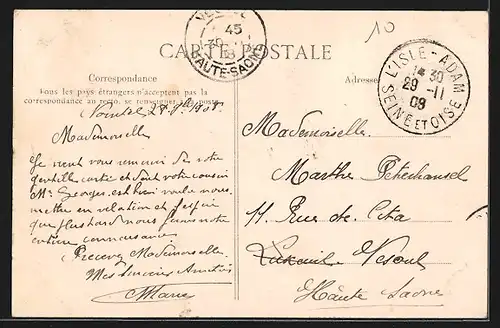 45
30
HAUTE-SAONE
10
CARTE POSTALE
L'ISLE-ADAM
30
29 -11
08
SEINE ET OISE
Correspondance
Tous les pays étrangers n'acceptent pas la
correspondance au recto, se renseigner à la poste
Adresse
1908
Mademoiselle
Je vous remercie de votre
gentille carte et dont votre cousin
Mr Georges, est bien voulu nous
mettre en relation et j'espère
que plus tard nous ferons votre
connaissance
Recevez Mademoiselle
Mes sincères Amitiés
Marie
Mademoiselle
Marthe
11 Rue de
Luxeuil Vesoul
Haute Saone